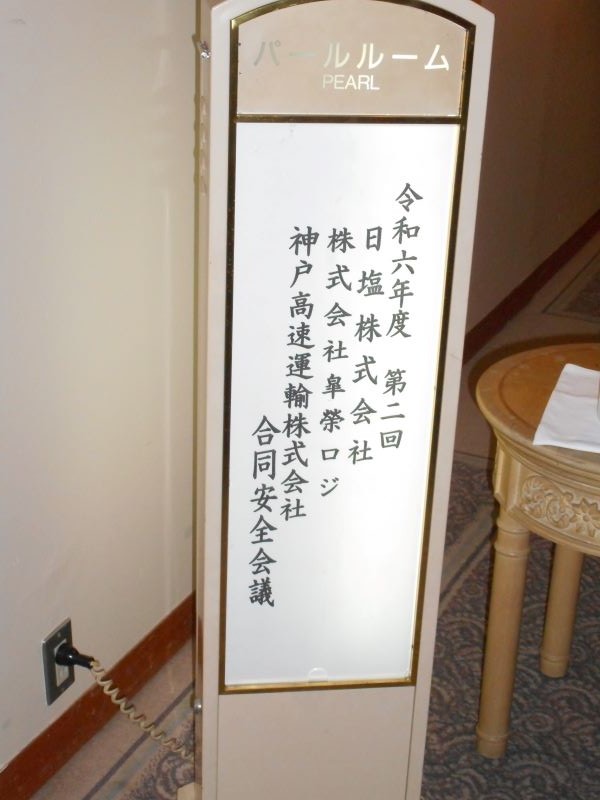 パールルーム
PEARL
令和六年度　第二回
日塩株式会社
株式会社皐榮ロジ
神戸高速運輸株式会社
合同安全会議